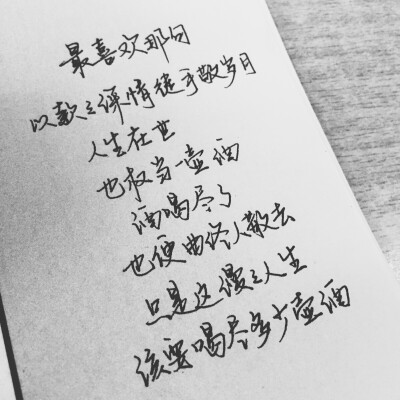 最喜欢那句
以款之深情徒手敬岁月
人生在世
也权当一壶酒
酒喝尽了
也便曲终人散去
只是这漫之人生
该要喝尽多少壶酒